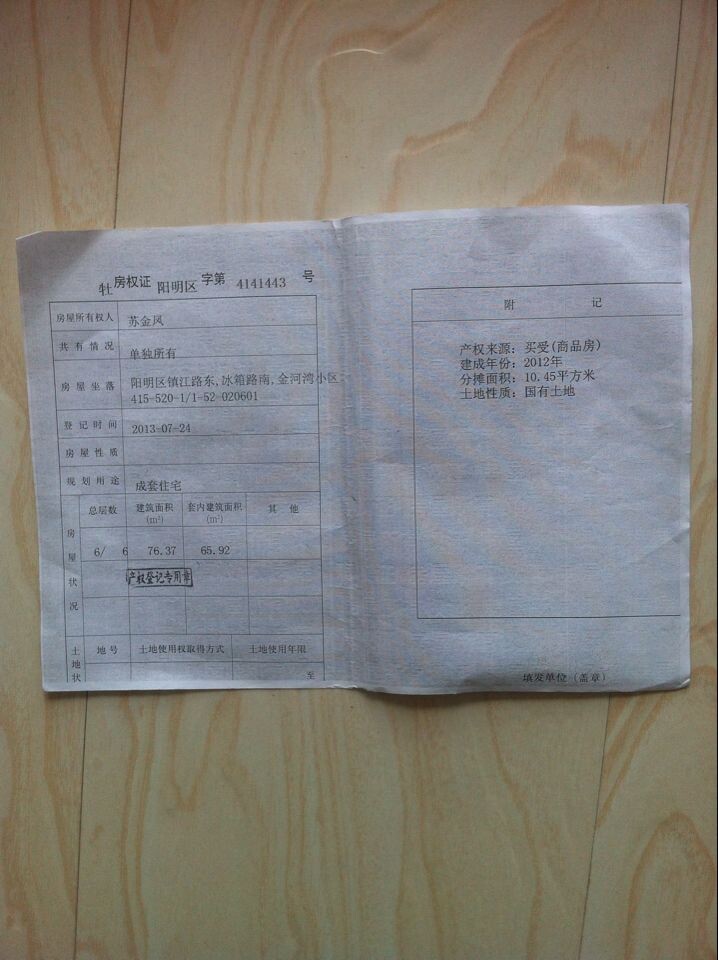 牡房权证 阳明区 字第 4141443 号
房屋所有权人 苏金风
共有情况 单独所有
房屋坐落 阳明区镇江路东,冰箱路南,金河湾小区
415-520-1/1-52-020601
登记时间 2013-07-24
房屋性质
规划用途 成套住宅
房屋状况
总层数 建筑面积(m²) 套内建筑面积(m²) 其他
6/ 6 76.37 65.92
产权登记专用章
土地状
地号 土地使用权取得方式 土地使用年限
至
附 记
产权来源: 买受(商品房)
建成年份: 2012年
分摊面积: 10.45平方米
土地性质: 国有土地
填发单位 (盖章)